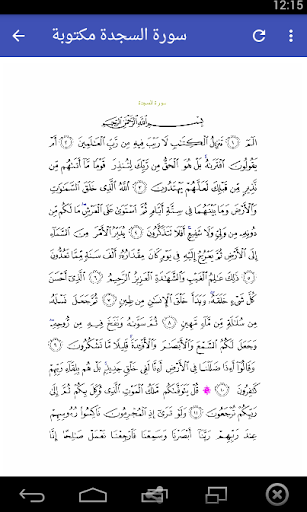 12:15
سورة السجدة مكتوبة
سورة السجدة
بسم الله الرحمن الرحيم
الم ۝١ تنزيل الكتاب لا ريب فيه من رب العالمين ۝٢ أم
يقولون افتراه بل هو الحق من ربك لتنذر قوما ما أتاهم من
نذير من قبلك لعلهم يهتدون ۝٣ الله الذي خلق السماوات
والأرض وما بينهما في ستة أيام ثم استوى على العرش ما لكم من
دونه من ولي ولا شفيع أفلا تتذكرون ۝٤ يدبر الأمر من السماء
إلى الأرض ثم يعرج إليه في يوم كان مقداره ألف سنة مما تعدون
۝٥ ذلك عالم الغيب والشهادة العزيز الرحيم ۝٦ الذي أحسن
كل شيء خلقه وبدأ خلق الإنسان من طين ۝٧ ثم جعل نسله
من سلالة من ماء مهين ۝٨ ثم سواه ونفخ فيه من روحه
وجعل لكم السمع والأبصار والأفئدة قليلا ما تشكرون ۝٩
وقالوا أءذا ضللنا في الأرض أءنا لفي خلق جديد بل هم بلقاء ربهم
كافرون ۝١٠ قل يتوفاكم ملك الموت الذي وكل بكم ثم إلى
ربكم ترجعون ۝١١ ولو ترى إذ المجرمون ناكسوا رءوسهم
عند ربهم ربنا أبصرنا وسمعنا فارجعنا نعمل صالحا إنا